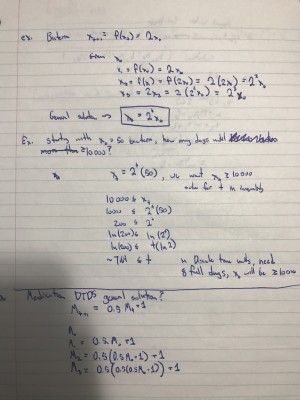 ex. Bacteria x_{t+1} = f(x_t) = 2x_t
Given x_0
x_1 = f(x_0) = 2x_0
x_2 = f(x_1) = f(2x_0) = 2(2x_0) = 2²x_0
x_3 = 2x_2 = 2(2²x_0) = 2³x_0
General solution → x_t = 2^t x_0
Ex. starting with x_0 = 50 bacteria, how many days until
more than ≥10000?
x_t = 2^t (50), we want x_t ≥ 10000
solve for t in inequality
10000 ≤ x_t
10000 ≤ 2^t (50)
200 ≤ 2^t
ln(200) ≤ ln(2^t)
ln(200) ≤ t(ln 2)
~7.64 ≤ t
in Discrete time units, need
8 full days, x_t will be ≥10000
Medication DTDS general solution?
M_{t+1} = 0.5M_t + 1
M_0
M_1 = 0.5M_0 + 1
M_2 = 0.5(0.5M_0 + 1) + 1
M_3 = 0.5(0.5(0.5M_0 + 1)) + 1